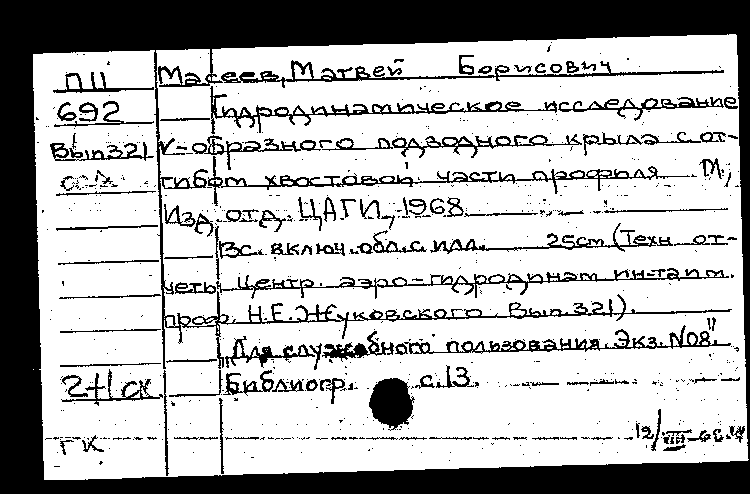 П11 Масеев, Матвей Борисович
692 Гидродинамическое исследование
Вып 321 V-образного подводного крыла с от-
гибом хвостовой части профиля М.,
Изд. отд. ЦАГИ, 1968
13с. включ. обл. с илл. 25cm (Техн от-
четы Центр. аэро-гидродинам ин-та им.
проф. Н.Е. Жуковского Вып. 321).
"Для служебного пользования. Экз. №08".
2+1 ск Библиогр. с. 13.
12/VIII-68
ГК